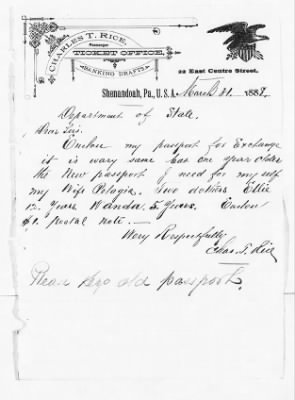 CHARLES T. RICE,
Passenger
TICKET OFFICE,
BANKING DRAFTS.
22 East Centre Street.
Shenandoah, Pa., U.S.A. March 31. 1889.
Department of State.
Dear Sir.
Enclou my passport for Exchange
it is wary same but one year older
the New passport I need for my self
my Wife Pelogia. Two dotters Ellie
12 years Wanda. 5 years. Enclou
$1. postal note.
Wery Respectfully
Chas. T. Rice
Pleas old passport.